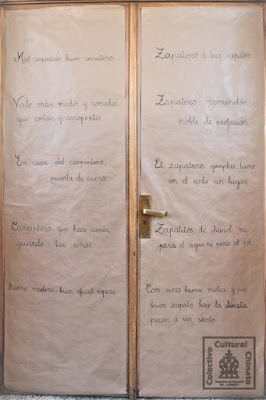 Mal carpintero, buen virutero.
Vale más medir y remedir,
que cortar y arrepentir.
En casa del carpintero,
puerta de cuero.
Carpintero que hace cunas,
guarda las uñas.
Buena madera, buen oficial espera.
Zapatero a tus zapatos.
Zapatero remendón,
noble de profesión.
El zapatero ejemplar, tiene
en el arte un lugar.
Zapatitos de charol, ni
para el agua ni para el sol.
Con una buena media y un
buen zapato hace la
pecar a un santo.
Colectivo
Cultural
Chinato